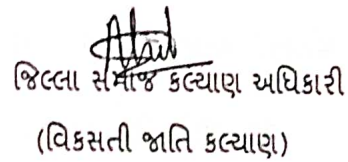 જિલ્લા સમાજ કલ્યાણ અધિકારી
(વિકસતી જાતિ કલ્યાણ)